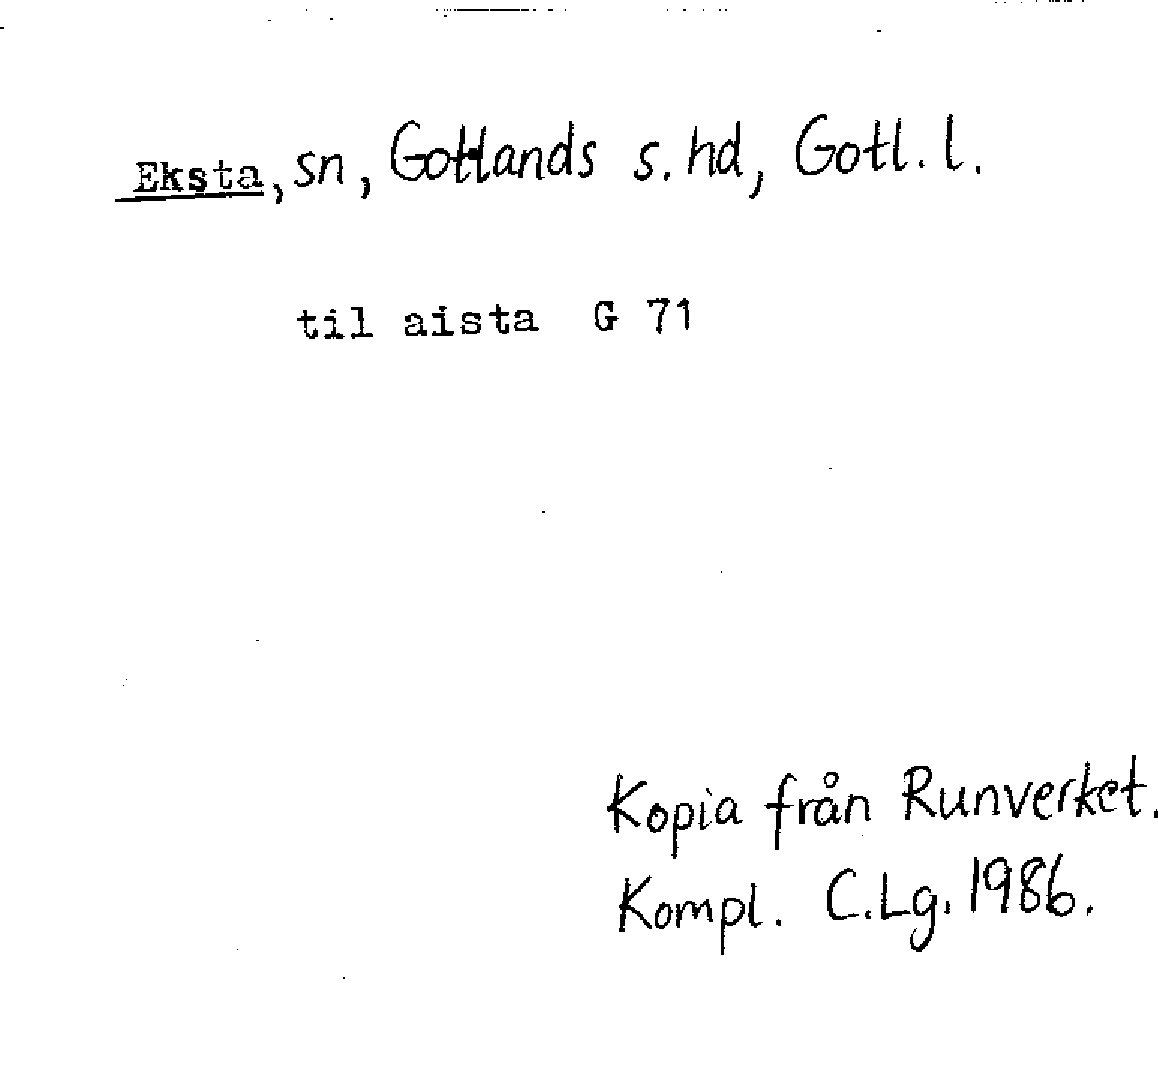 Eksta, sn, Gotlands s. hd, Gotl. l.
til aista G 71
Kopia från Runverket.
Kompl. C.Lg. 1986.